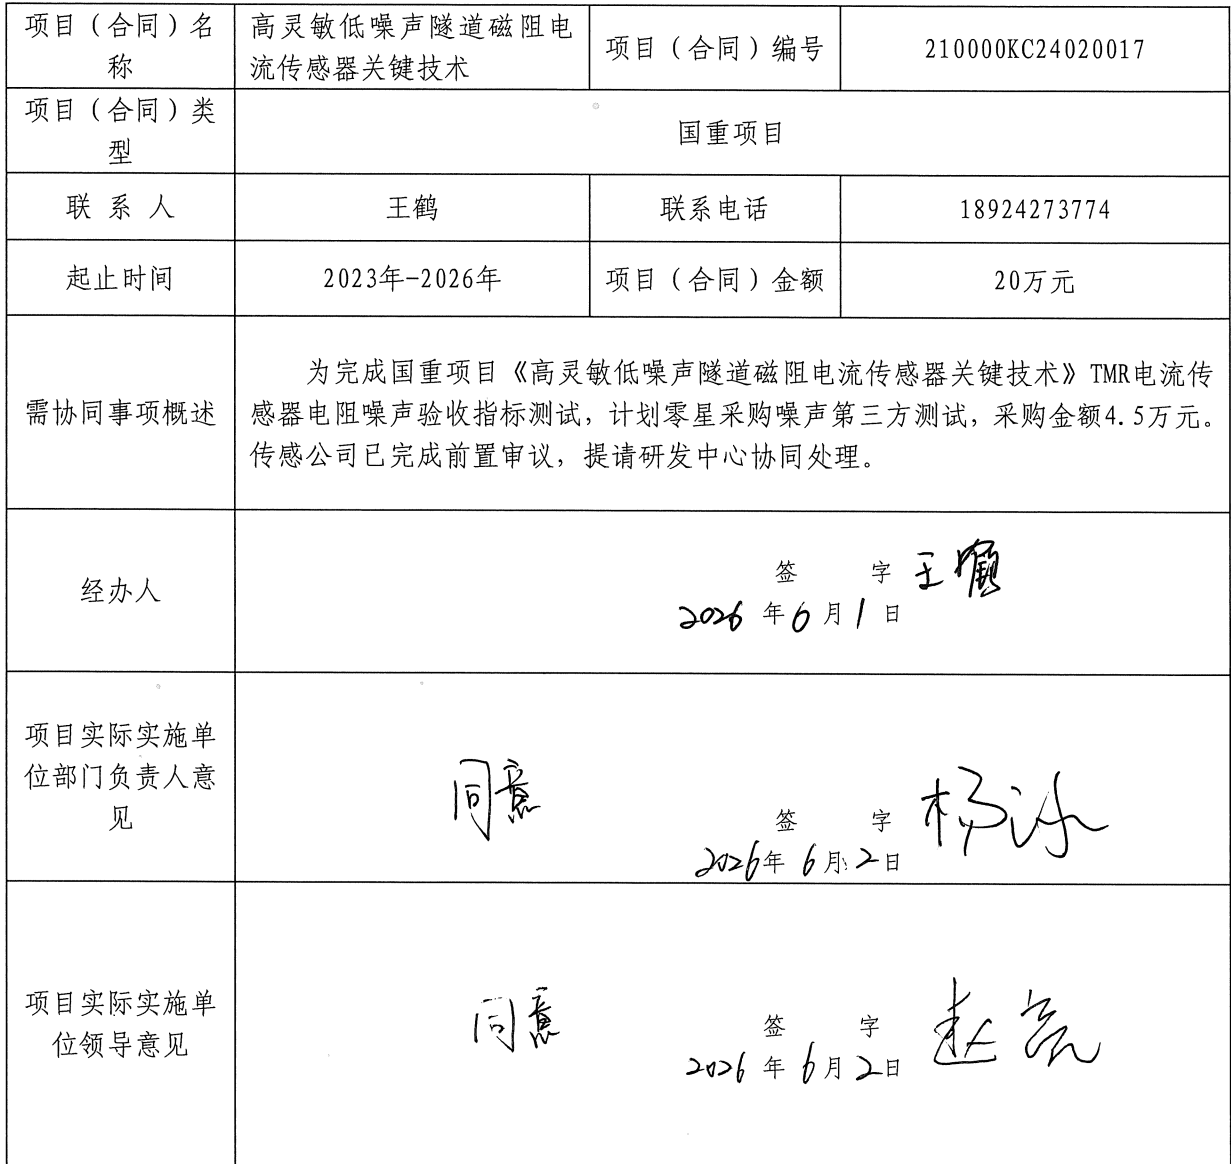 项目（合同）名
称
高灵敏低噪声隧道磁阻电
流传感器关键技术
项目（合同）编号
210000KC24020017
项目（合同）类
型
国重项目
联 系 人
王鹤
联系电话
18924273774
起止时间
2023年-2026年
项目（合同）金额
20万元
需协同事项概述
为完成国重项目《高灵敏低噪声隧道磁阻电流传感器关键技术》TMR电流传
感器电阻噪声验收指标测试，计划零星采购噪声第三方测试，采购金额4.5万元。
传感公司已完成前置审议，提请研发中心协同处理。
经办人
签 字 王鹤
2026 年 6 月 1 日
项目实际实施单
位部门负责人意
见
同意
签 字 杨
2026年 6 月 2 日
项目实际实施单
位领导意见
同意
签 字 赵亮
2026 年 6 月 2 日